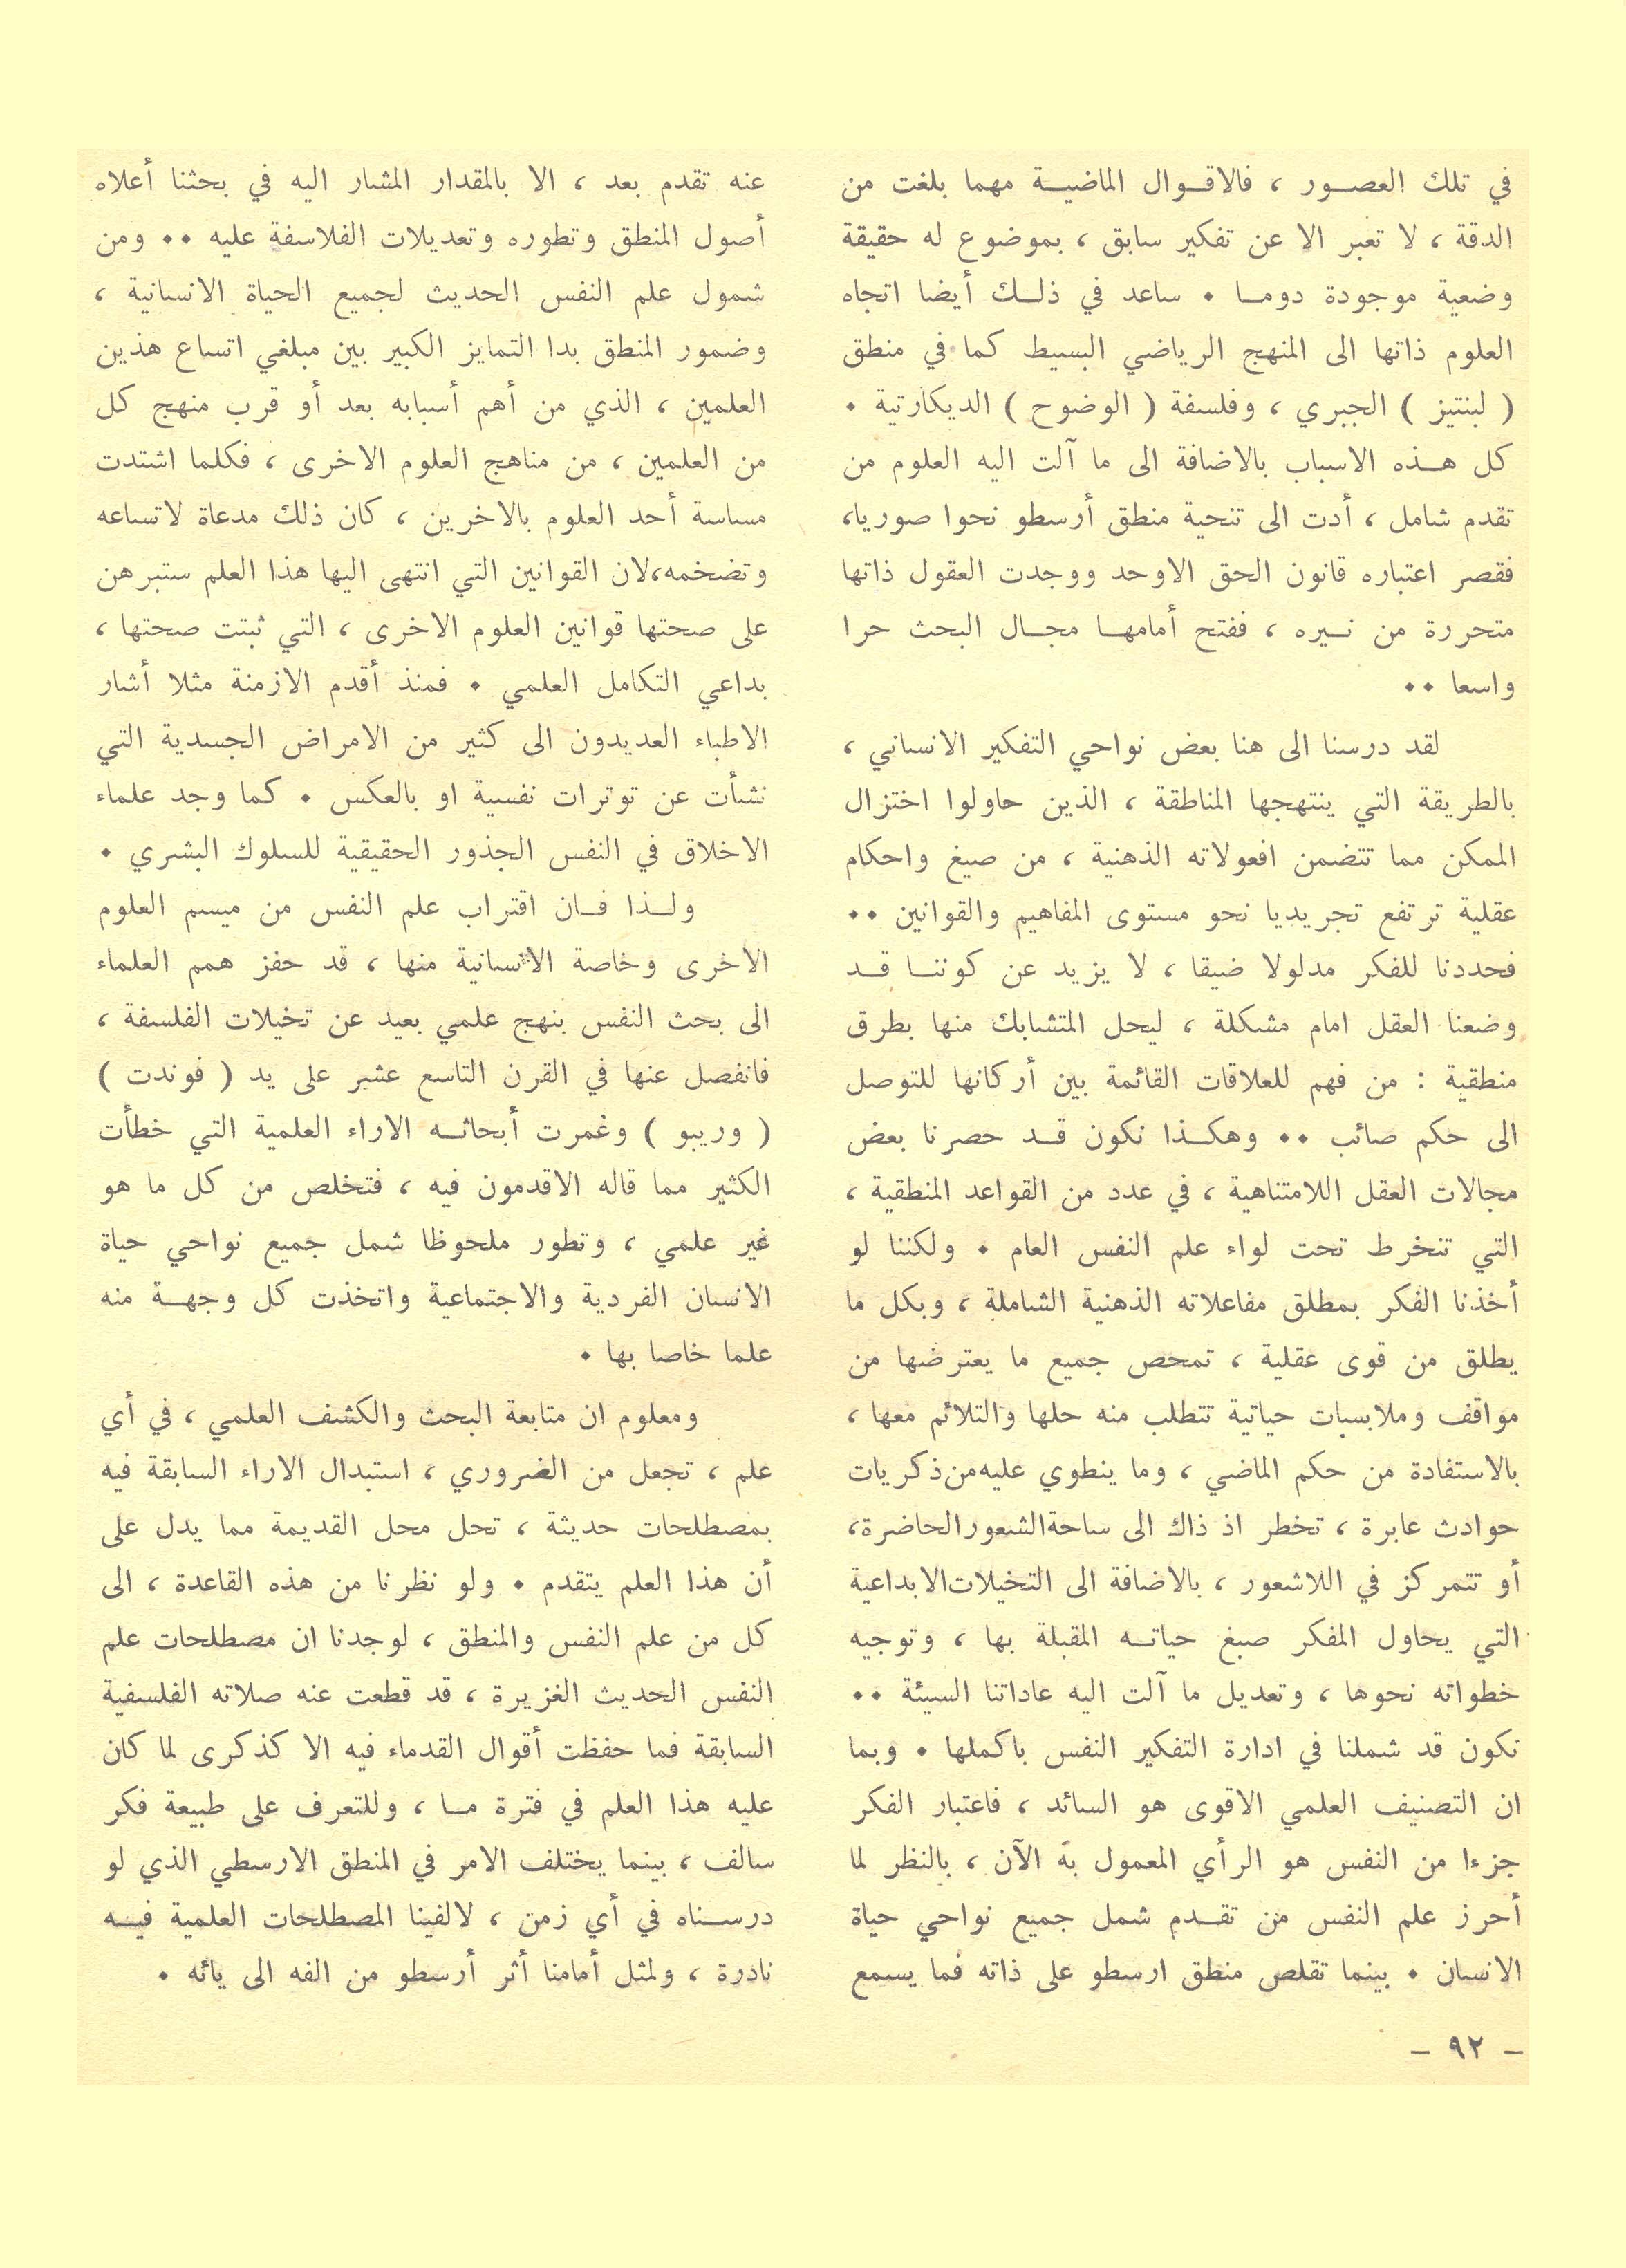 في تلك العصور ، فالاقوال الماضية مهما بلغت من
الدقة ، لا تعبر الا عن تفكير سابق ، بموضوع له حقيقة
وضعية موجودة دوما . ساعد في ذلك أيضا اتجاه
العلوم ذاتها الى المنهج الرياضي البسيط كما في منطق
( لبنتيز ) الجبري ، وفلسفة ( الوضوح ) الديكارتية .
كل هذه الاسباب بالاضافة الى ما آلت اليه العلوم من
تقدم شامل ، أدت الى تنحية منطق أرسطو نحوا صوريا،
فقصر اعتباره قانون الحق الاوحد ووجدت العقول ذاتها
متحررة من نيره ، ففتح أمامها مجال البحث حرا
واسعا ..
لقد درسنا الى هنا بعض نواحي التفكير الانساني ،
بالطريقة التي ينتهجها المناطقة ، الذين حاولوا اختزال
الممكن مما تتضمن افعولاته الذهنية ، من صيغ واحكام
عقلية ترتفع تجريديا نحو مستوى المفاهيم والقوانين ..
فحددنا للفكر مدلولا ضيقا ، لا يزيد عن كوننا قد
وضعنا العقل امام مشكلة ، ليحل المتشابك منها بطرق
منطقية : من فهم للعلاقات القائمة بين أركانها للتوصل
الى حكم صائب .. وهكذا نكون قد حصرنا بعض
مجالات العقل اللامتناهية ، في عدد من القواعد المنطقية ،
التي تنخرط تحت لواء علم النفس العام . ولكننا لو
أخذنا الفكر بمطلق مفاعلاته الذهنية الشاملة ، وبكل ما
يطلق من قوى عقلية ، تمحص جميع ما يعترضها من
مواقف وملابسات حياتية تتطلب منه حلها والتلائم معها ،
بالاستفادة من حكم الماضي ، وما ينطوي عليه من ذكريات
حوادث عابرة ، تخطر اذ ذاك الى ساحة الشعور الحاضرة،
أو تتمركز في اللاشعور ، بالاضافة الى التخيلات الابداعية
التي يحاول المفكر صبغ حياته المقبلة بها ، وتوجيه
خطواته نحوها ، وتعديل ما آلت اليه عاداتنا السيئة ..
نكون قد شملنا في ادارة التفكير النفس باكملها . وبما
ان التصنيف العلمي الاقوى هو السائد ، فاعتبار الفكر
جزءا من النفس هو الرأي المعمول به الآن ، بالنظر لما
أحرز علم النفس من تقدم شمل جميع نواحي حياة
الانسان . بينما تقلص منطق ارسطو على ذاته فما يسمع
عنه تقدم بعد ، الا بالمقدار المشار اليه في بحثنا أعلاه
أصول المنطق وتطوره وتعديلات الفلاسفة عليه .. ومن
شمول علم النفس الحديث لجميع الحياة الانسانية ،
وضمور المنطق بدا التمايز الكبير بين مبلغي اتساع هذين
العلمين ، الذي من أهم أسبابه بعد أو قرب منهج كل
من العلمين ، من مناهج العلوم الاخرى ، فكلما اشتدت
مساسة أحد العلوم بالاخرين ، كان ذلك مدعاة لاتساعه
وتضخمه، لان القوانين التي انتهى اليها هذا العلم ستبرهن
على صحتها قوانين العلوم الاخرى ، التي ثبتت صحتها ،
بداعي التكامل العلمي . فمنذ أقدم الازمنة مثلا أشار
الاطباء العديدون الى كثير من الامراض الجسدية التي
نشأت عن توترات نفسية او بالعكس . كما وجد علماء
الاخلاق في النفس الجذور الحقيقية للسلوك البشري .
ولذا فان اقتراب علم النفس من ميسم العلوم
الاخرى وخاصة الانسانية منها ، قد حفز همم العلماء
الى بحث النفس بنهج علمي بعيد عن تخيلات الفلسفة ،
فانفصل عنها في القرن التاسع عشر على يد ( فوندت )
( وريبو ) وغمرت أبحاثه الاراء العلمية التي خطأت
الكثير مما قاله الاقدمون فيه ، فتخلص من كل ما هو
غير علمي ، وتطور ملحوظا شمل جميع نواحي حياة
الانسان الفردية والاجتماعية واتخذت كل وجهة منه
علما خاصا بها .
ومعلوم ان متابعة البحث والكشف العلمي ، في أي
علم ، تجعل من الضروري ، استبدال الاراء السابقة فيه
بمصطلحات حديثة ، تحل محل القديمة مما يدل على
أن هذا العلم يتقدم . ولو نظرنا من هذه القاعدة ، الى
كل من علم النفس والمنطق ، لوجدنا ان مصطلحات علم
النفس الحديث الغزيرة ، قد قطعت عنه صلاته الفلسفية
السابقة فما حفظت أقوال القدماء فيه الا كذكرى لما كان
عليه هذا العلم في فترة ما ، وللتعرف على طبيعة فكر
سالف ، بينما يختلف الامر في المنطق الارسطي الذي لو
درسناه في أي زمن ، لالفينا المصطلحات العلمية فيه
نادرة ، ولمثل أمامنا أثر أرسطو من الفه الى يائه .
- ٩٢ -